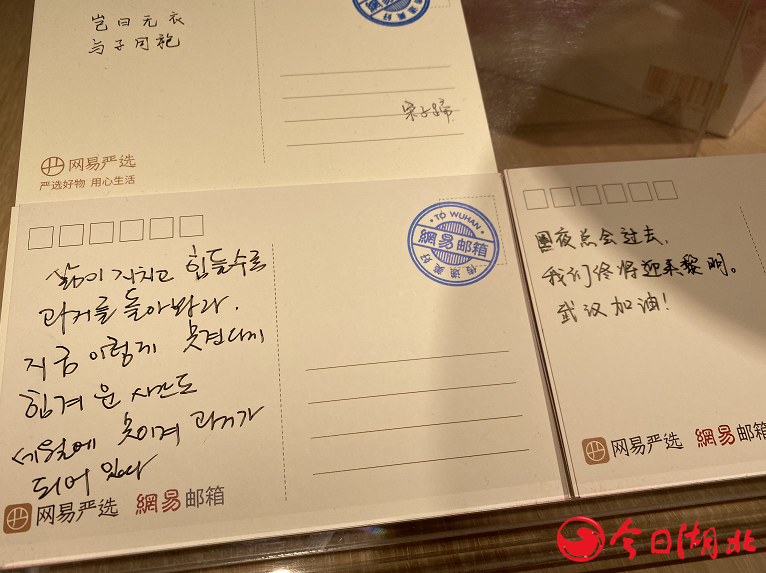 岂曰无衣
与子同袍
网易严选
严选好物 用心生活
TO WUHAN
網易邮箱
传递美好
삶이 지치고 힘들수록
과거를 돌아봐라.
지금 이렇게 못견디게
힘겨운 시간도
세월에 못이겨 과거가
되어 있다
网易严选 網易邮箱
夜总会过去,
我们终将迎来黎明。
武汉加油!
网易严选 網易邮箱
今日湖北